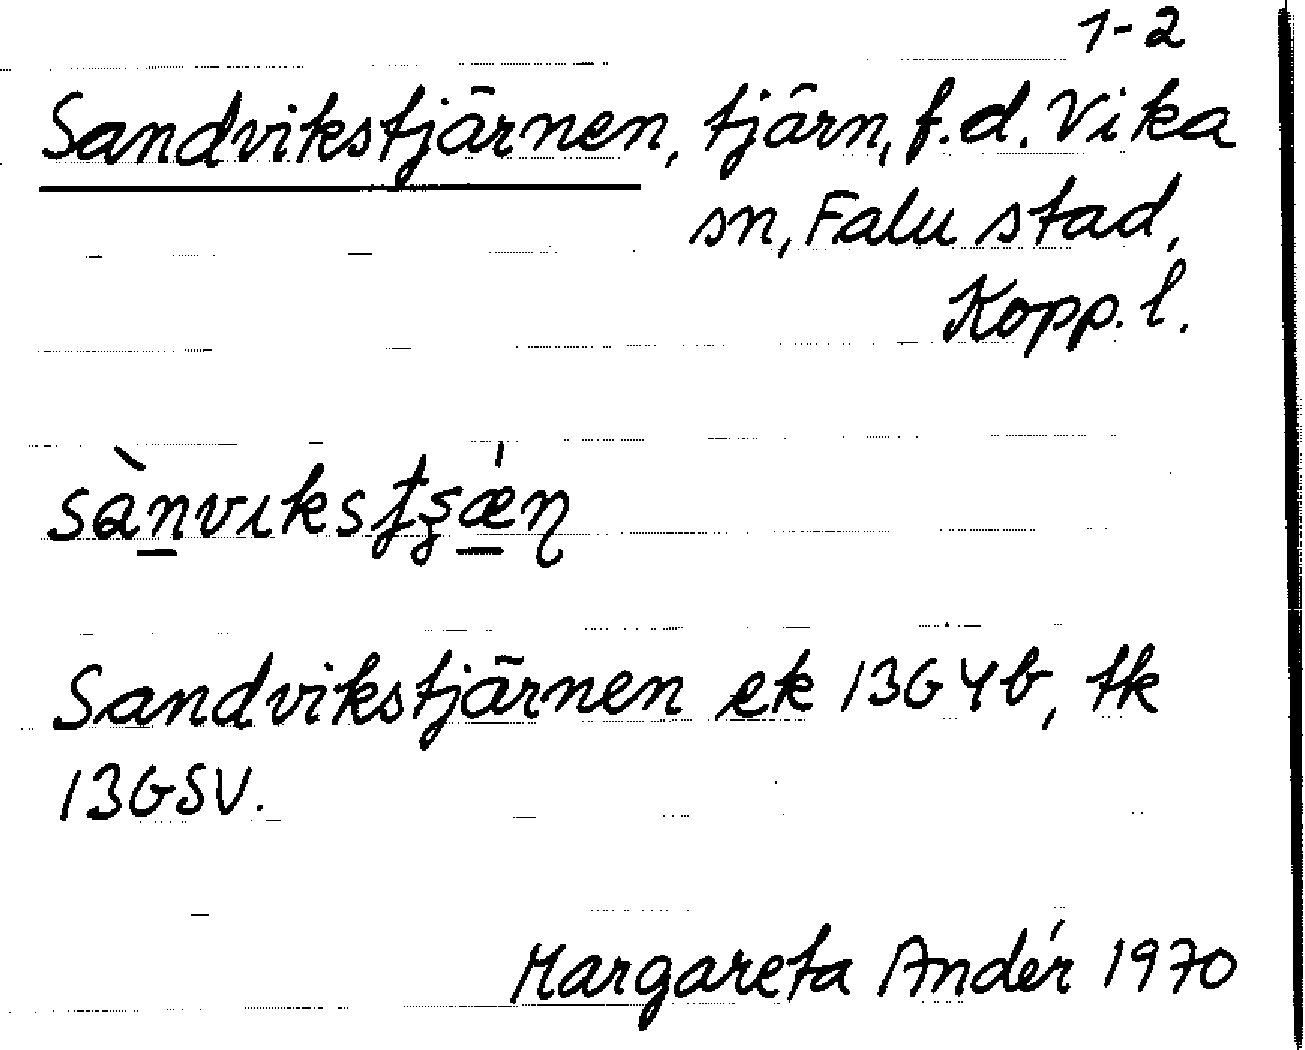 1-2
Sandvikstjärnen, tjärn, f.d. Vika
sn, Falu stad,
Kopp. l.
Sandvikstjärnen ek 13G4b, tk
13GSV.
Margareta Andér 1970